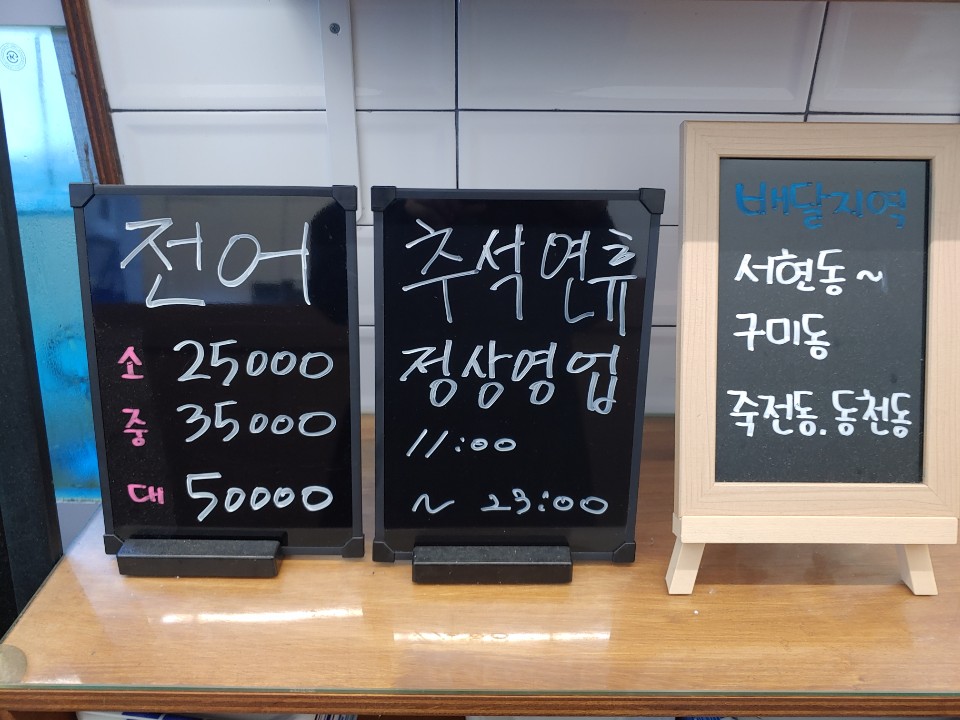 전어
소 25000
중 35000
대 50000
추석연휴
정상영업
11:00
~ 23:00
배달지역
서현동~
구미동
죽전동.동천동